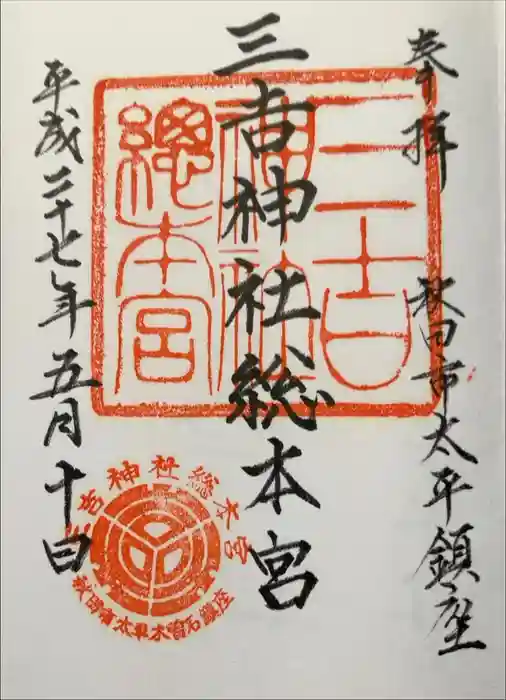 奉拝
秋田市太平鎮座
三吉神社総本宮
平成二十七年五月十日
三吉神社
總本宮
三吉神社総本宮
秋田市太平木曽石鎮座